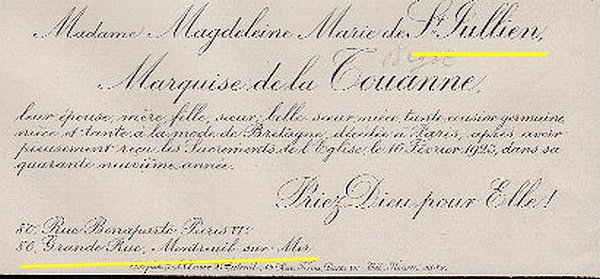 Madame Magdeleine Marie de St Jullien,
Marquise de la Touanne,
leur épouse, mère, fille, sœur, belle sœur, nièce, tante, cousine germaine,
nièce et tante à la mode de Bretagne, décédée à Paris, après avoir
pieusement reçu les Sacrements de l'Eglise, le 10 Février 1923, dans sa
quarante neuvième année.
Priez Dieu pour Elle!
Rue Bonaparte Paris VIe
50, Grande Rue, Montreuil-sur-Mer